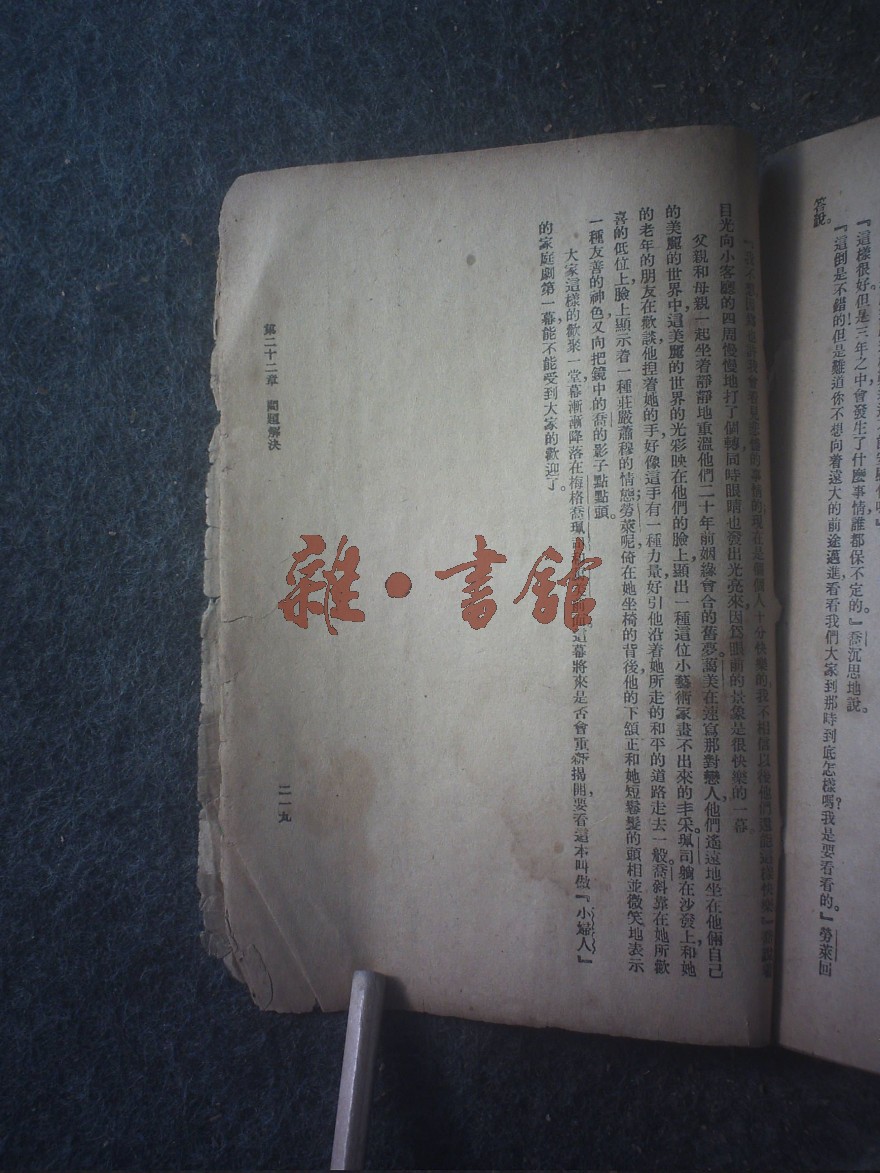 『這樣很好但是三年之中會發生了什麼事情誰都保不定的。』喬沉思地說。
『這倒是不錯的但是難道你不想向着遠大的前途邁進看看我們大家到那時到底怎樣嗎?我是要看看的。』勞萊回
答說。
的事情的現在是個個人十分快樂的我不相信以後他們還能這樣快樂』
目光向小客廳的四周慢慢地打了個轉同時眼睛也發出光亮來因爲眼前的景象是很快樂的一幕。
父親和母親一起坐着靜靜地重溫他們二十年前姻緣會合的舊夢萬美在速寫那對戀人他們遙遠地坐在他倆自己
的美麗的世界中,這美麗的世界的光彩映在他們的臉上,顯出一種這位小藝術家畫不出來的丰采。珮司躺在沙發上,和她
的老年的朋友在歡談他揑着她的手好像這手有一種力量好引他沿着她所走的和平的道路走去一般。喬斜靠在她所歡
喜的低位上臉上顯示着一種莊嚴肅穆的情態;勞萊呢倚在她坐椅的背後他的下頷正和她短鬈髮的頭相並微笑地表示
一種友善的神色又向把鏡中的喬的影子點點頭。
大家這樣的歡聚一堂,幕漸漸降落在梅格喬珮這幕將來是否會重新揭開,要看這本叫做『小婦人』
的家庭劇第一幕能不能受到大家的歡迎了。
第二十二章 問題解決
二一九
雜·書館